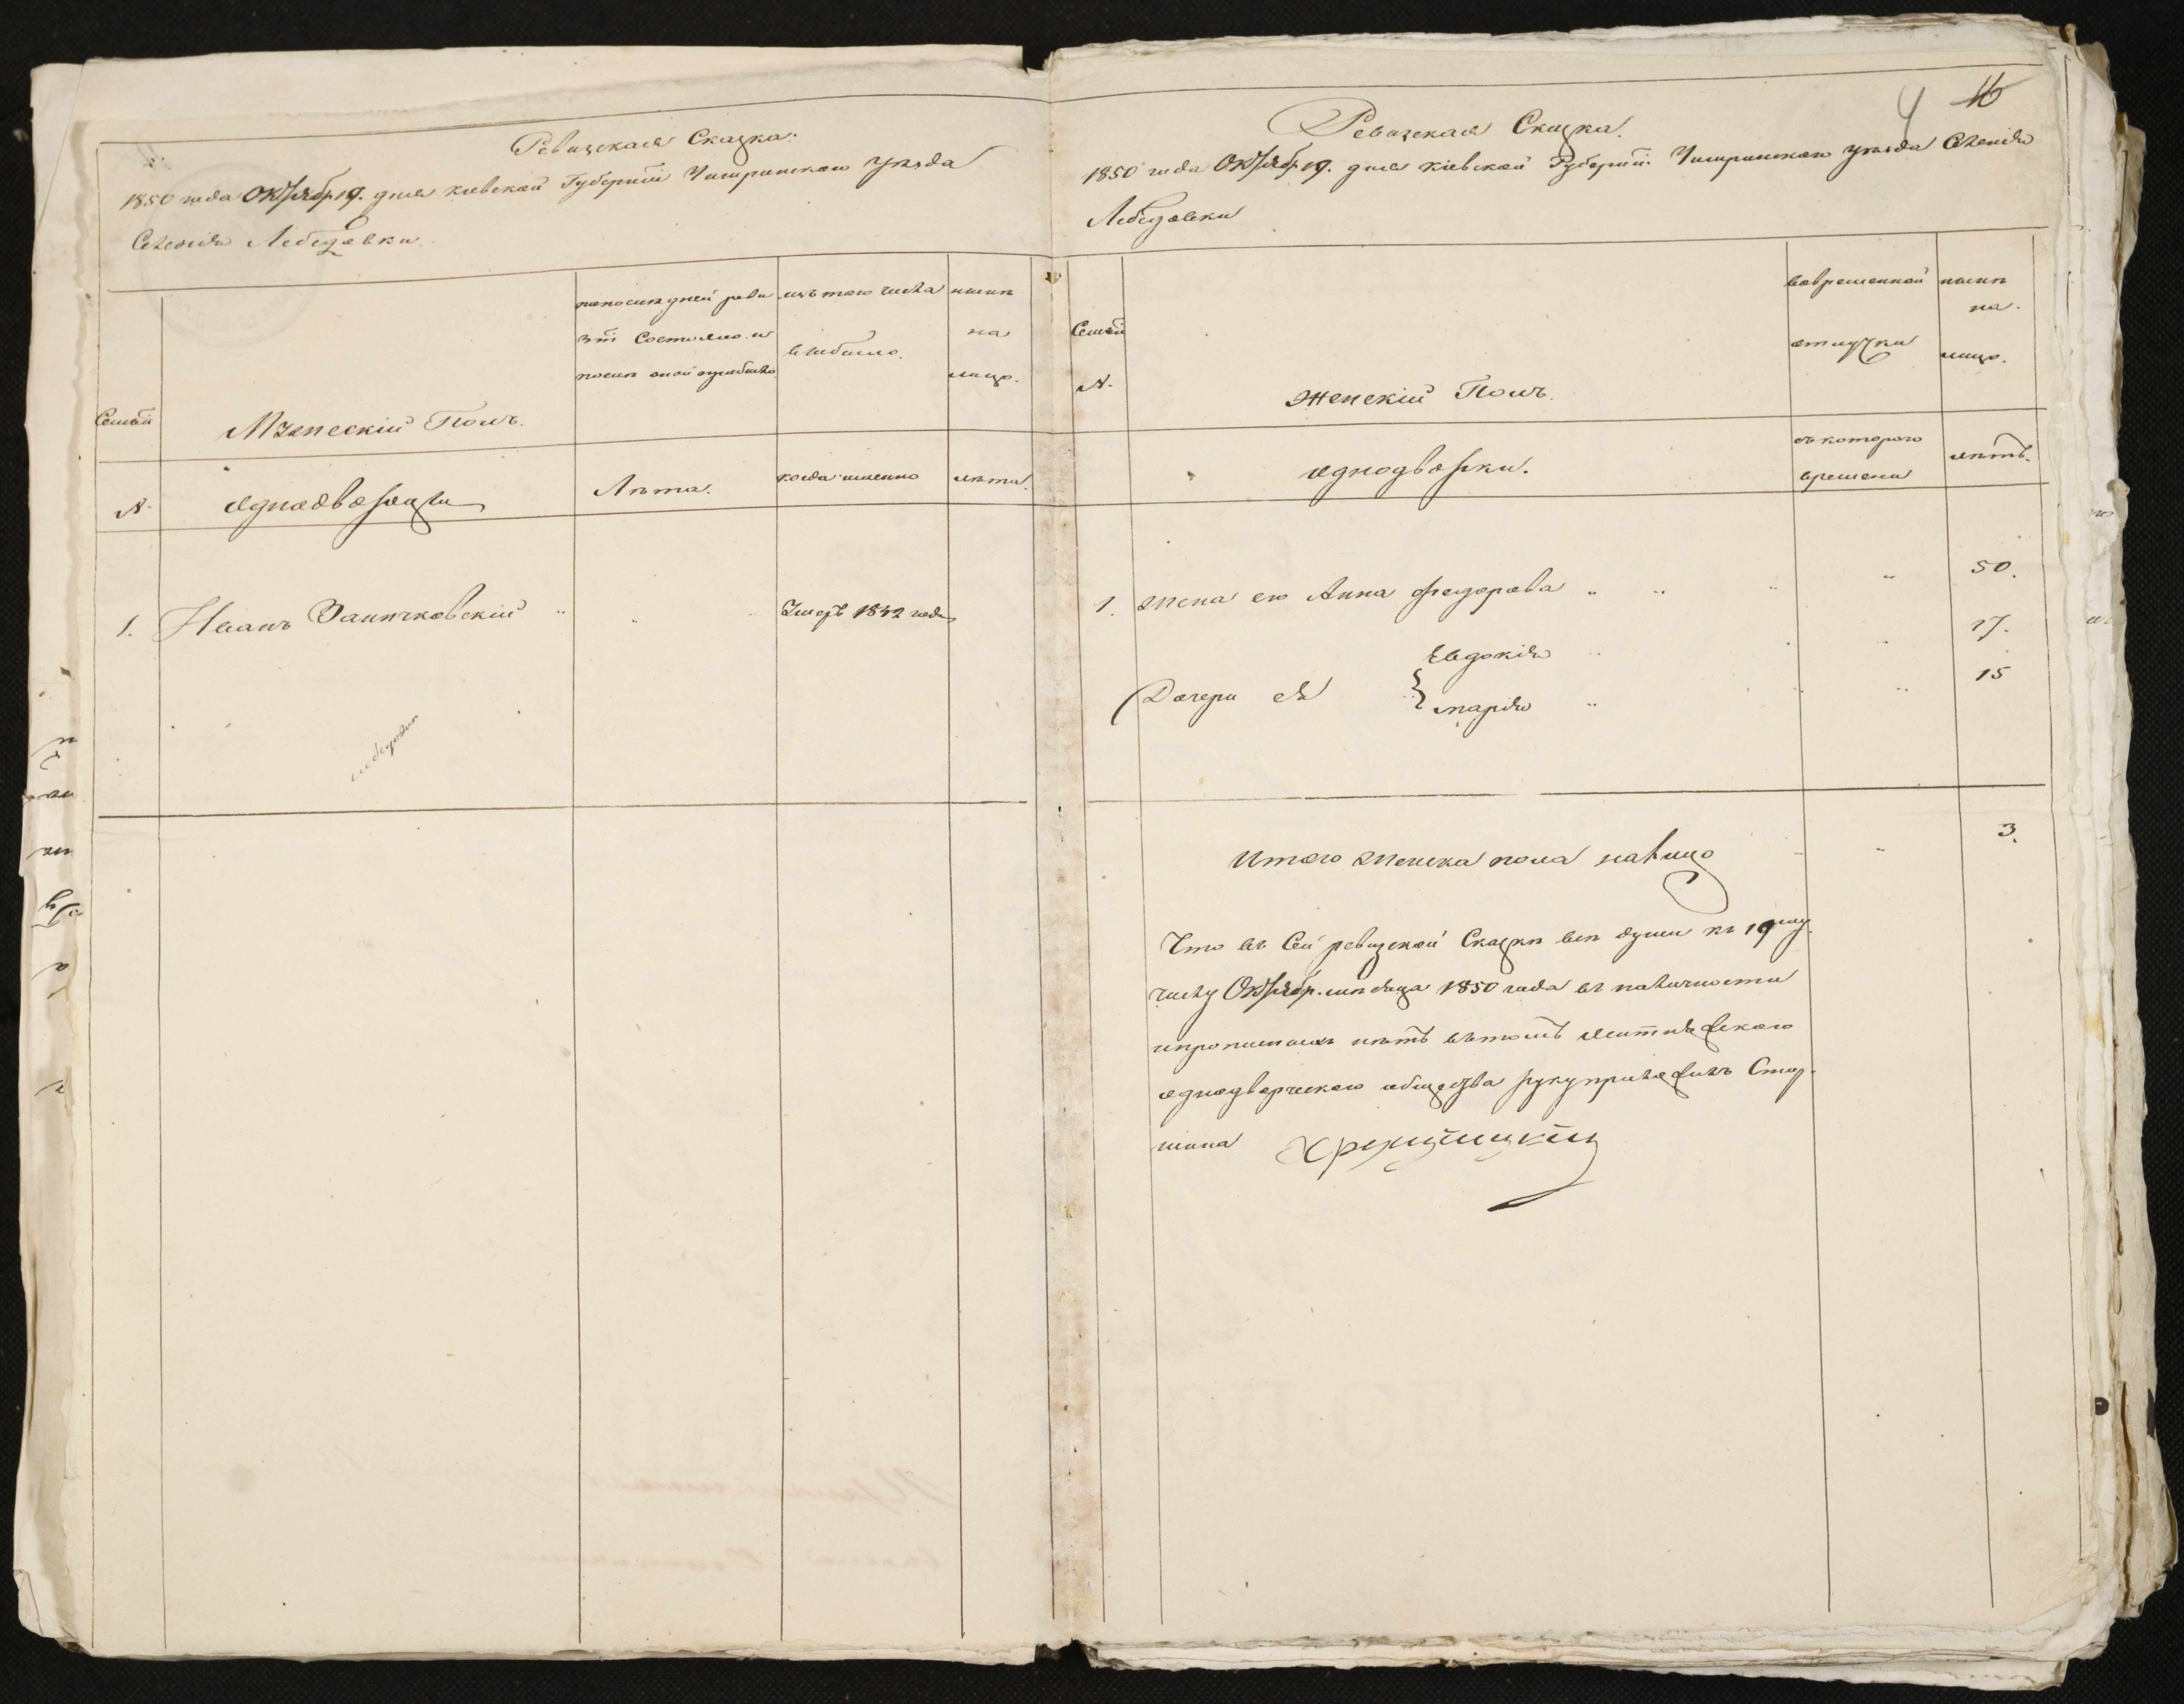 Ревизская Сказка.
1850 года Октября 19. дня Киевской Губернiи Чигиринского уѣзда
Селенiя Лебедовки
Семьи
№
Мужескiй Полъ.
Однодворцы
по последней реви
зiи состояло и
после оной прибыло
Лѣта.
изъ того числа
выбыло.
когда именно
нынѣ
на
лицо.
лѣта.
1. Иванъ Заичковскiй
Умеръ 1842 года
4 16
Ревизская Сказка.
1850 года Октября 19. дня Кiевской Губернiи Чигиринского уѣзда Селенiя
Лебедовки
Семьи
№.
Женскiй Полъ.
однодворки.
во временной
отлучки
съ которого
времени
нынѣ
на.
лицо.
лѣтъ.
1. жена его Анна Федорова 50.
Евдокiя 17.
Дочери ея
Марiя 15
Итого женска пола на лицо 3.
Что въ Сей ревизской Сказки всѣ души къ 19му
числу Октябр. мѣсяца 1850 года въ наличности
и прописныхъ нѣтъ въ томъ
однодворческого общества руку приложилъ Стар
шина